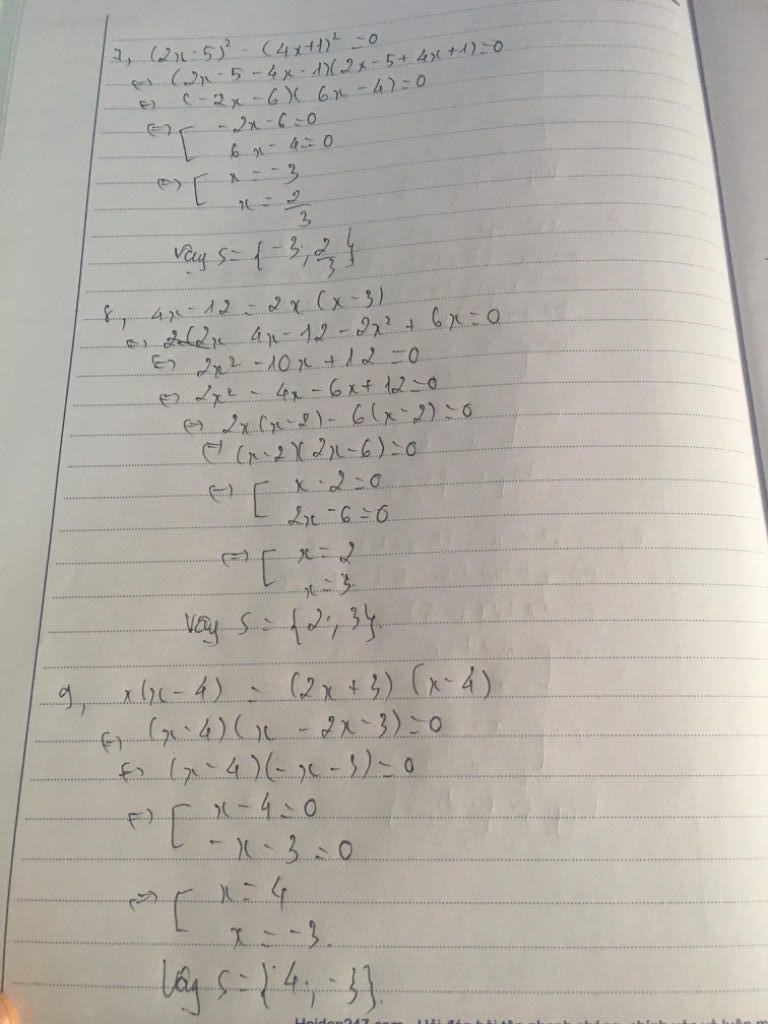 7, (2x-5)² - (4x+1)² = 0
⇔ (2x-5-4x-1)(2x-5+4x+1)=0
⇔ (-2x-6)(6x-4)=0
⇔ [ -2x-6=0
6x-4=0
⇔ [ x=-3
x=2/3
Vậy S={-3; 2/3}
8, 4x-12=2x(x-3)
⇔ 4x-12-2x²+6x=0
⇔ 2x²-10x+12=0
⇔ 2x²-4x-6x+12=0
⇔ 2x(x-2)-6(x-2)=0
⇔ (x-2)(2x-6)=0
⇔ [ x-2=0
2x-6=0
⇔ [ x=2
x=3.
Vậy S={2; 3}.
9, x(x-4) = (2x+3)(x-4)
⇔ (x-4)(x-2x-3)=0
⇔ (x-4)(-x-3)=0
⇔ [ x-4=0
-x-3=0
⇔ [ x=4
x=-3.
Vậy S={4; -3}.